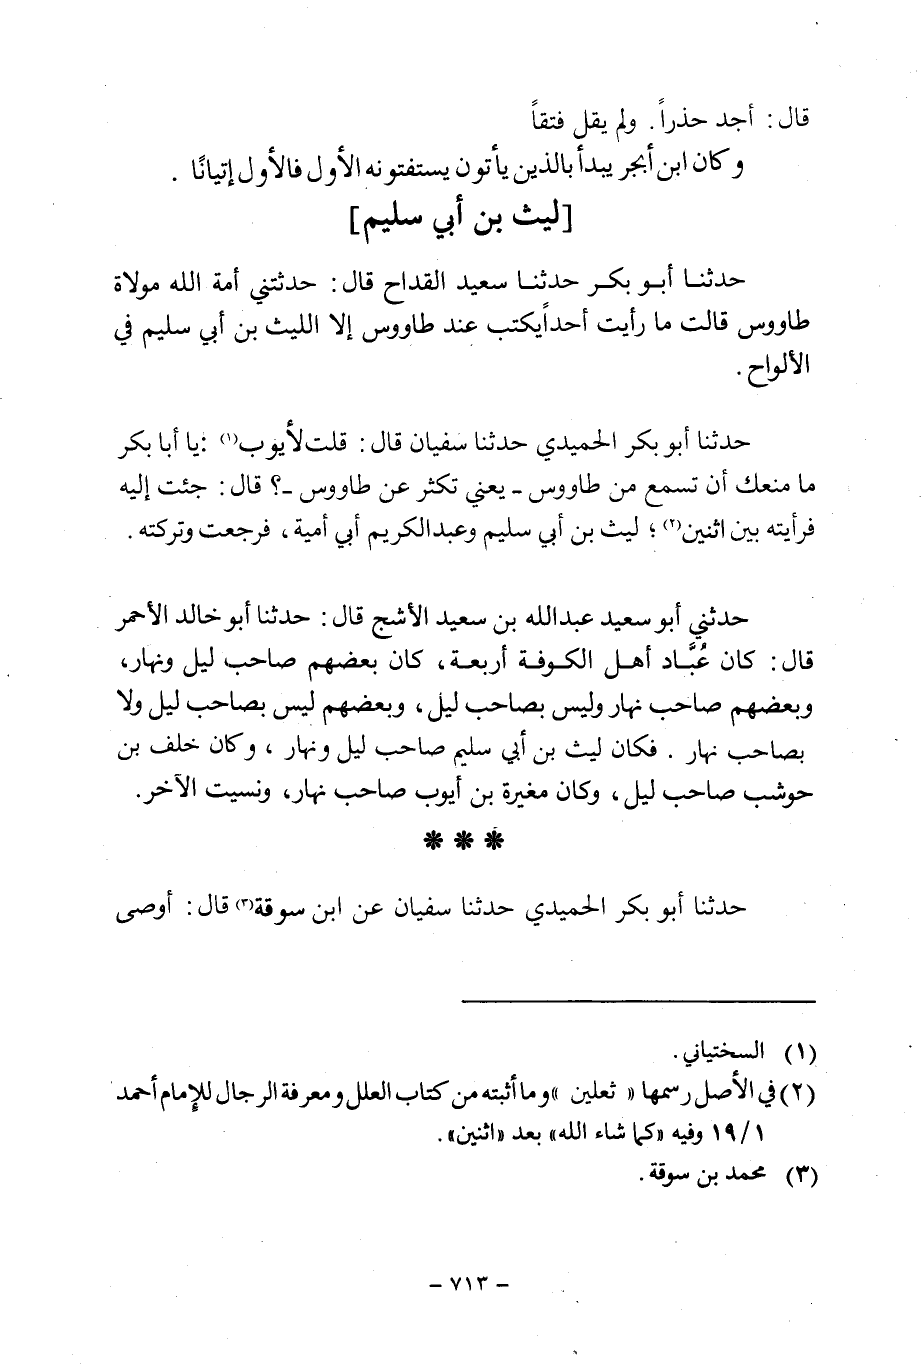 قال: أجد حذراً. ولم يقل فتقاً
وكان ابن أبجر يبدأ بالذين يأتون يستفتونه الأول فالأول إتيانًا .
[ليث بن أبي سليم]
حدثنا أبو بكر حدثنا سعيد القداح قال: حدثتني أمة الله مولاة
طاووس قالت ما رأيت أحداً يكتب عند طاووس إلا الليث بن أبي سليم في
الألواح .
حدثنا أبو بكر الحميدي حدثنا سفيان قال: قلت لأيوب(١) :يا أبا بكر
ما منعك أن تسمع من طاووس ـ يعني تكثر عن طاووس ـ؟ قال: جئت إليه
فرأيته بين اثنين(٢) ؛ ليث بن أبي سليم وعبدالكريم أبي أمية، فرجعت وتركته .
حدثني أبو سعيد عبدالله بن سعيد الأشج قال: حدثنا أبو خالد الأحمر
قال: كان عُبَّاد أهل الكوفة أربعة، كان بعضهم صاحب ليل ونهار،
وبعضهم صاحب نهار وليس بصاحب ليل، وبعضهم ليس بصاحب ليل ولا
بصاحب نهار . فكان ليث بن أبي سليم صاحب ليل ونهار ، وكان خلف بن
حوشب صاحب ليل، وكان مغيرة بن أيوب صاحب نهار، ونسيت الآخر.
* * *
حدثنا أبو بكر الحميدي حدثنا سفيان عن ابن سوقة(٣) قال: أوصى
(١) السختياني.
(٢) في الأصل رسمها « ثعلين » وما أثبته من كتاب العلل ومعرفة الرجال للإمام أحمد
١٩/١ وفيه «كما شاء الله» بعد «اثنين».
(٣) محمد بن سوقة .
- ٧١٣ -